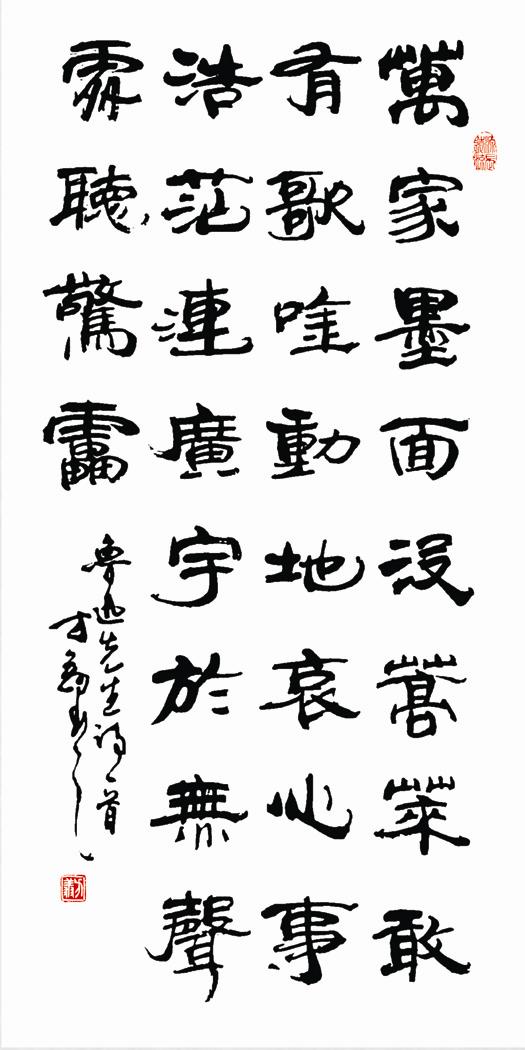 萬家墨面沒蒿萊敢
有歌唫動地哀心事
浩茫連廣宇於無聲
處聽驚靁
魯迅先生詩一首
方